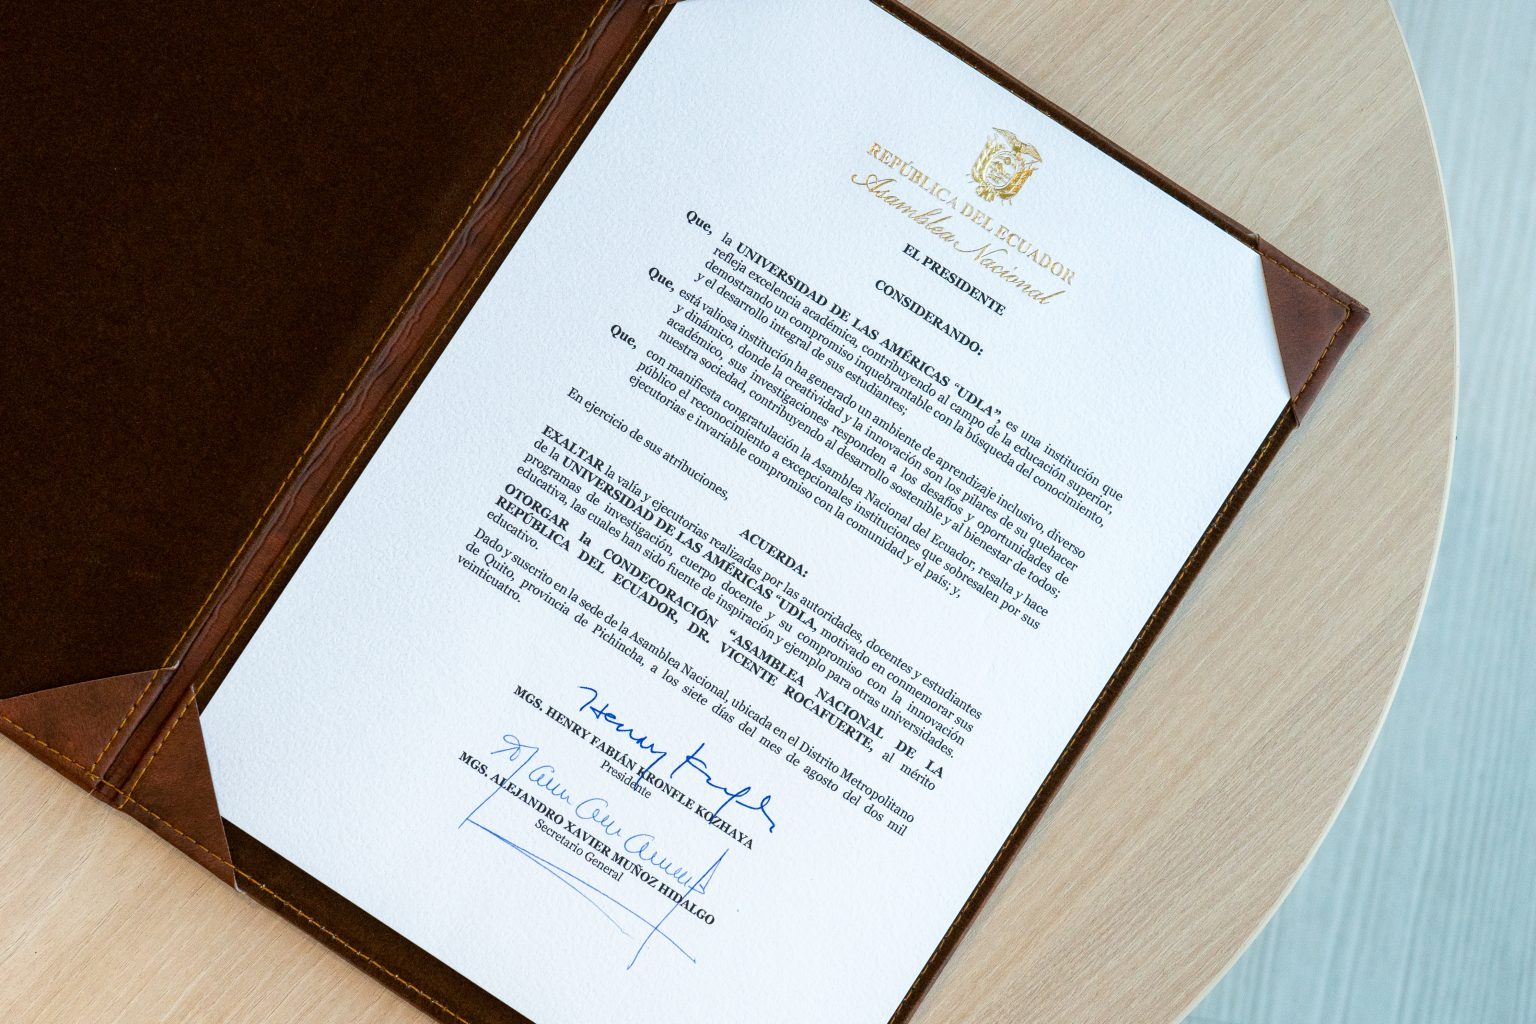 REPÚBLICA DEL ECUADOR
Asamblea Nacional
EL PRESIDENTE
CONSIDERANDO:
Que, la UNIVERSIDAD DE LAS AMÉRICAS “UDLA”, es una institución que
refleja excelencia académica, contribuyendo al campo de la educación superior,
demostrando un compromiso inquebrantable con la búsqueda del conocimiento,
y el desarrollo integral de sus estudiantes;
Que, está valiosa institución ha generado un ambiente de aprendizaje inclusivo, diverso
y dinámico, donde la creatividad y la innovación son los pilares de su quehacer
académico, sus investigaciones responden a los desafíos y oportunidades de
nuestra sociedad, contribuyendo al desarrollo sostenible y al bienestar de todos;
Que, con manifiesta congratulación la Asamblea Nacional del Ecuador, resalta y hace
público el reconocimiento a excepcionales instituciones que sobresalen por sus
ejecutorias e invariable compromiso con la comunidad y el país; y,
En ejercicio de sus atribuciones,
ACUERDA:
EXALTAR la valía y ejecutorias realizadas por las autoridades, docentes y estudiantes
de la UNIVERSIDAD DE LAS AMÉRICAS “UDLA, motivado en conmemorar sus
programas de investigación, cuerpo docente y su compromiso con la innovación
educativa, las cuales han sido fuente de inspiración y ejemplo para otras universidades.
OTORGAR la CONDECORACIÓN “ASAMBLEA NACIONAL DE LA
REPÚBLICA DEL ECUADOR, DR. VICENTE ROCAFUERTE, al mérito
educativo.
Dado y suscrito en la sede de la Asamblea Nacional, ubicada en el Distrito Metropolitano
de Quito, provincia de Pichincha, a los siete días del mes de agosto del dos mil
veinticuatro.
Henry Kronfle
MGS. HENRY FABIÁN KRONFLE KOZHAYA
Presidente
MGS. ALEJANDRO XAVIER MUÑOZ HIDALGO
Secretario General